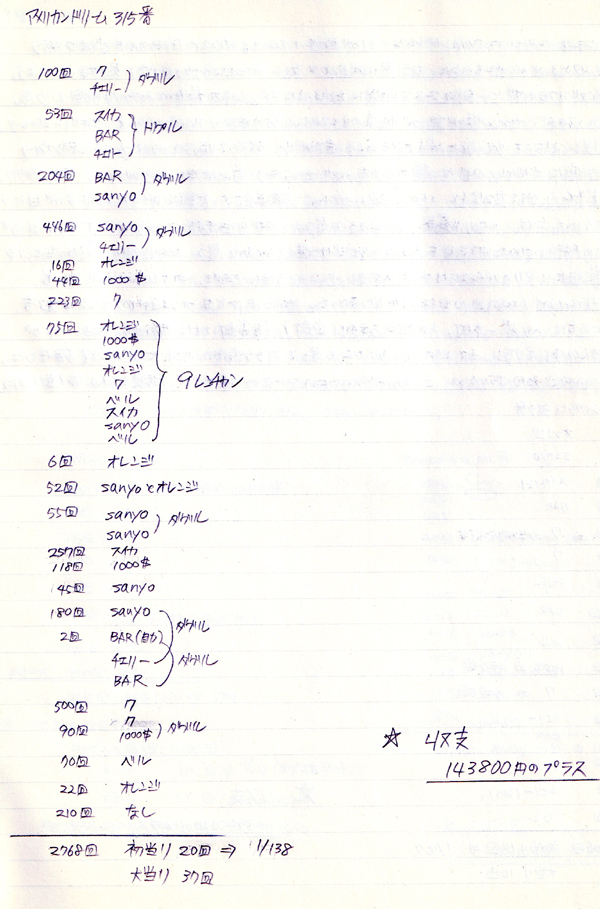 アメリカンドリーム 315番
100回 7
チェリー ダブル
53回 スイカ
BAR トリプル
チェリー
204回 BAR ダブル
sanyo
446回 sanyo ダブル
チェリー
16回 オレンジ
44回 1000$
223回 7
75回 オレンジ
1000$
sanyo
オレンジ
7 9レンチャン
ベル
スイカ
sanyo
ベル
6回 オレンジ
52回 sanyoとオレンジ
55回 sanyo ダブル
sanyo
257回 スイカ
118回 1000$
145回 sanyo
180回 sanyo ダブル
2回 BAR(自力)
チェリー ダブル
BAR
500回 7
90回 7 ダブル
1000$
70回 ベル
22回 オレンジ
210回 なし
☆ 収支
143800円のプラス
2768回 初当り 20回 ⇒ 1/138
大当り 37回